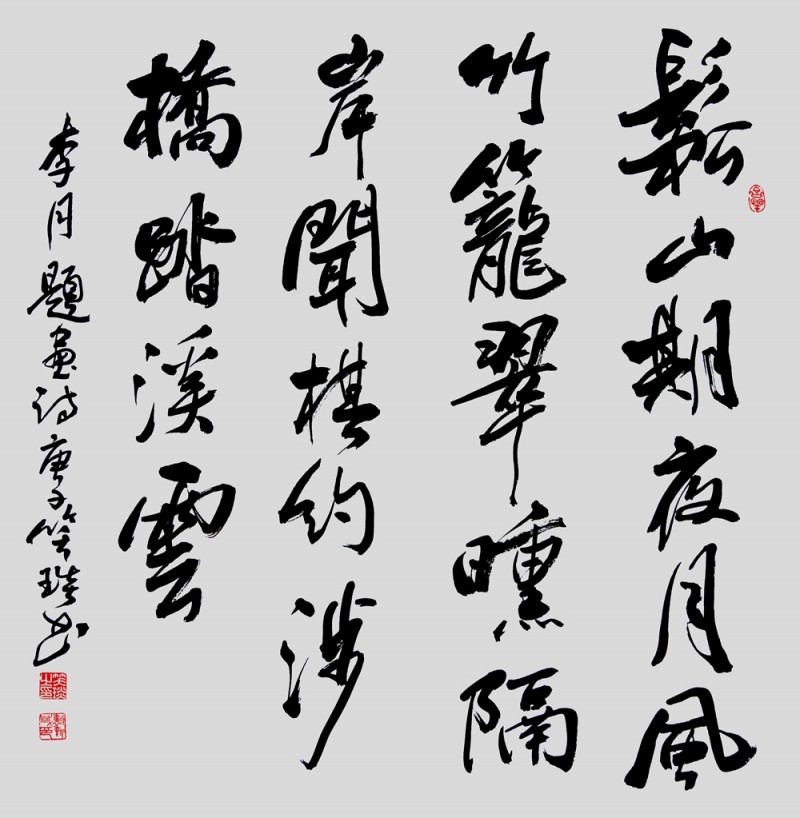 鬆山期夜月風
竹籠翠曛隔
岸聞棋約涉
橋踏溪雲
李月題画诗庚子笑书